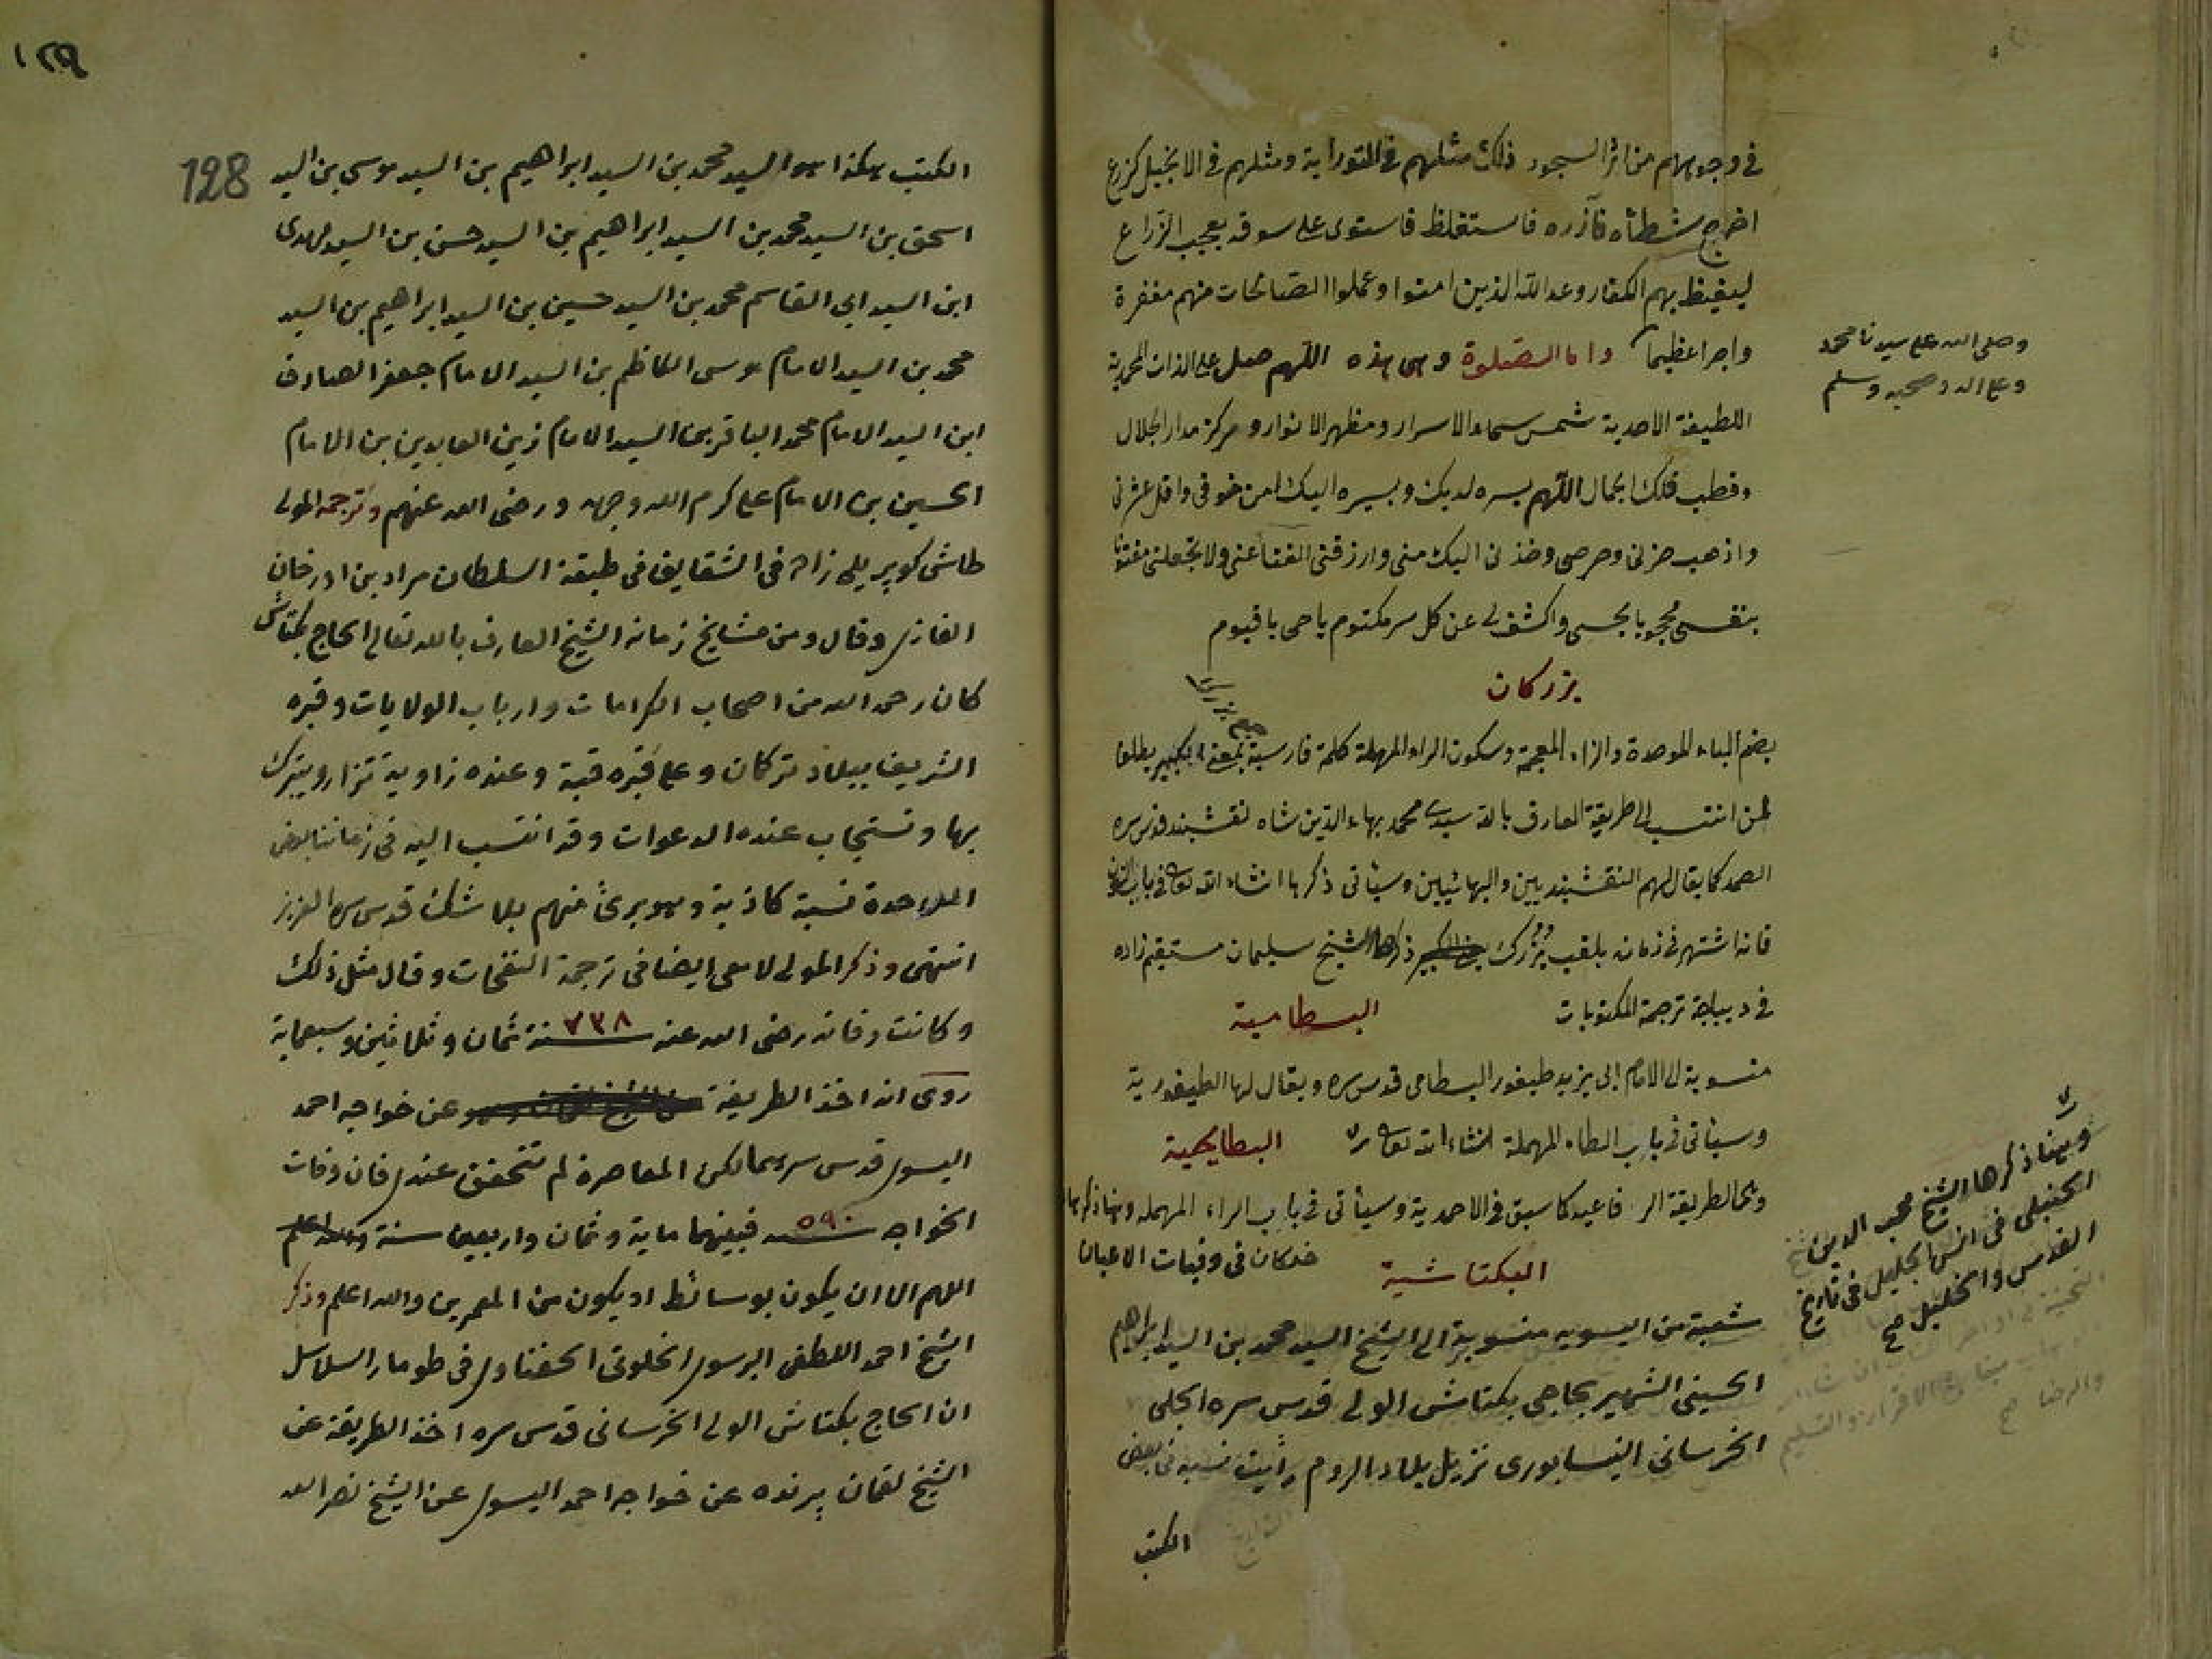 في وجوههم من اثر السجود ذلك مثلهم في التوراية ومثلهم في الانجيل كزرع
اخرج شطأه فآزره فاستغلظ فاستوى على سوقه يعجب الزراع
ليغيظ بهم الكفار وعد الله الذين امنوا وعملوا الصالحات منهم مغفرة
واجرا عظيما واما الصلوة وهي هذه اللهم صل على الذات المحمدية
وصلى الله على سيدنا محمد
وعلى اله وصحبه وسلم
اللطيفة الاحدية شمس سماء الاسرار ومظهر الانوار ومركز مدار الجلال
وقطب فلك الجمال اللهم بسره لديك وبسيره اليك امن خوفي واقل عثرتي
واذهب حزني وحرصي وخذني اليك مني وارزقني الفناء عني ولا تجعلني مفتونا
بنفسي محجوبا بحسي واكشف لي عن كل سر مكتوم يا حي يا قيوم
بزركان
بضم الباء الموحدة والزاء المعجمة وسكون الراء المهملة كلمة فارسية بمعنى الكبير يطلق
جمع بزرك
لمن انتسب الى طريقة العارف بالله سيدى محمد بهاء الدين شاه نقشبند قدس سره
الصمد كما يقال لهم النقشبنديين والبهائيين وسيأتى ذكرها انشاء الله تعالى في باب النون
فانه اشتهر في زمانه بلقب بزرك ذكرها الشيخ سليمان مستقيم زاده
في ديباجة ترجمة المكتوبات
البسطامية
منسوبة الى الامام ابى يزيد طيفور البسطامى قدس سره ويقال لها الطيفورية
وسيأتى في باب الطاء المهملة انشاء الله تعالى
البطايحية
وهي الطريقة الرفاعيه كما سبق في الاحمدية وسيأتى في باب الراء المهمله وبهذا ذكرها
خلكان في وفيات الاعيان
وبهذا ذكرها الشيخ مجير الدين
الحنبلى في انس الجليل في تاريخ
القدس والخليل صح
البكتاشية
شعبة من اليسويه منسوبة الى الشيخ السيد محمد بن السيد ابراهيم
الحسينى الشهير بحاجى بكتاش الولى قدس سره الجلى
الخرسانى النيسابورى نزيل بلاد الروم رأيت نسبه في بعض
الكتب
١٢٨
128
الكتب هكذا هو السيد محمد بن السيد ابراهيم بن السيد موسى بن السيد
اسحق بن السيد محمد بن السيد ابراهيم بن السيد حسن بن السيد مهدى
ابن السيد ابى القاسم محمد بن السيد حسين بن السيد ابراهيم بن السيد
محمد بن السيد الامام موسى الكاظم بن السيد الامام جعفر الصادق
ابن السيد الامام محمد الباقر بن السيد الامام زين العابدين بن الامام
الحسين بن الامام على كرم الله وجهه ورضى الله عنهم وترجمه المولى
طاش كوپريلى زاده فى الشقايق فى طبقة السلطان مراد بن اورخان
الغازى وقال ومن مشايخ زمانه الشيخ العارف بالله تعالى الحاج بكتاش
كان رحمه الله من اصحاب الكرامات وارباب الولايات وقبره
الشريف ببلاد تركمان وعلى قبره قبة وعنده زاوية تزار ويتبرك
بها وتستجاب عنده الدعوات وقد انتسب اليه فى زماننا بعض
الملاحدة نسبة كاذبة وهو برئ منهم بلا شك قدس سره العزيز
انتهى وذكر المولى لامعى ايضا فى ترجمة النفحات وقال مثل ذلك
وكانت وفاته رضى الله عنه سنة ٧٣٨ ثمان وثلاثين وسبعماية
روى انه اخذ الطريقة عن خواجه احمد
اليسوى قدس سرهما لكن المعاصرة لم تتحقق عندى فان وفات
الخواجه سنه ٥٩٠ فبينهما ماية وثمان واربعين سنة والله اعلم
اللهم الا ان يكون بوسائط او يكون من المعمرين والله اعلم وذكر
الشيخ احمد اللطفى البرسوى الخلوتى الحفناوى فى طومار السلاسل
ان الحاج بكتاش الولى الخرسانى قدس سره اخذ الطريقة عن
الشيخ لقمان پرنده عن خواجه احمد اليسوى عن الشيخ نصر الله